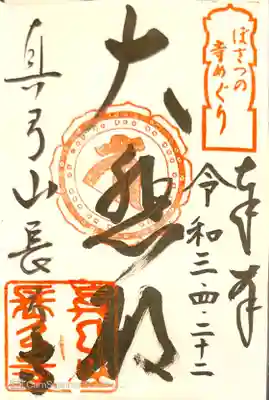 ぼさつの
寺めぐり
奉拝
令和三・四・二十二
大悲殿
真弓山長弓寺